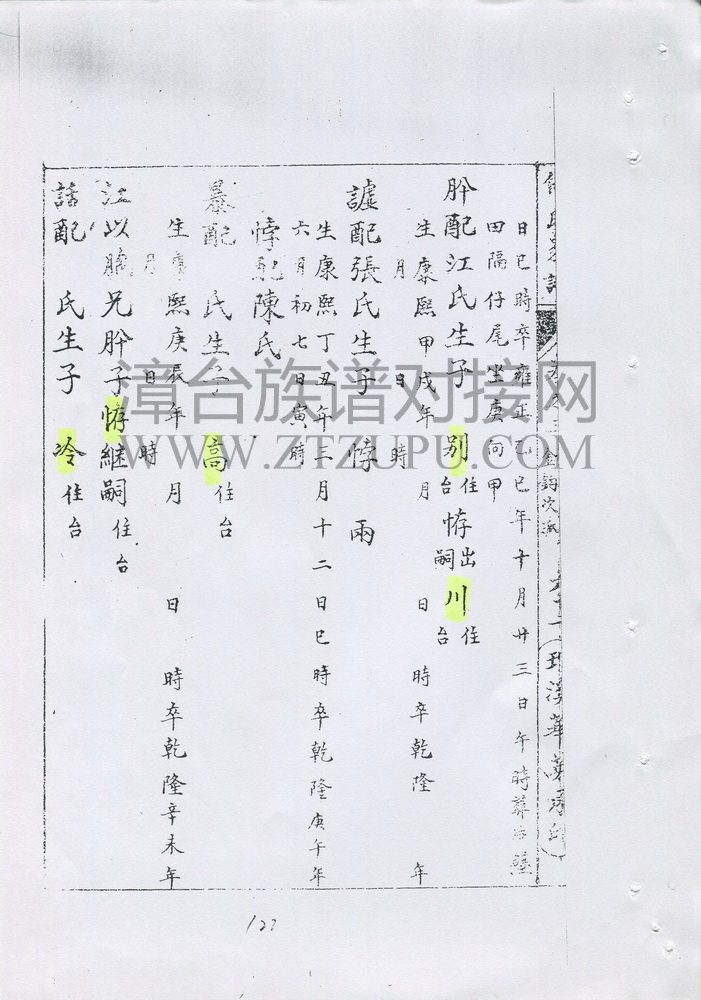 日巳時卒雍正己巳年十月廿三日午時葬
田隔仔尾坐庚向甲
肸配江氏生子 别住台 㤝出嗣 川住台
生康熙甲戌年 月 日 時卒乾隆 年
月 日 時
謔配張氏生子 悖 雨
生康熙丁丑年三月十二日巳時卒乾隆庚午年
六月初七日寅時
悖配陳氏
暴配 氏生子 高住台
生康熙庚辰年 月 日 時卒乾隆辛未年
月 日 時
江以 兄肸子㤝継嗣住台
話配 氏生子 冷住台
金鈎次派
漳台族谱对接网
WWW.ZTZUPU.COM